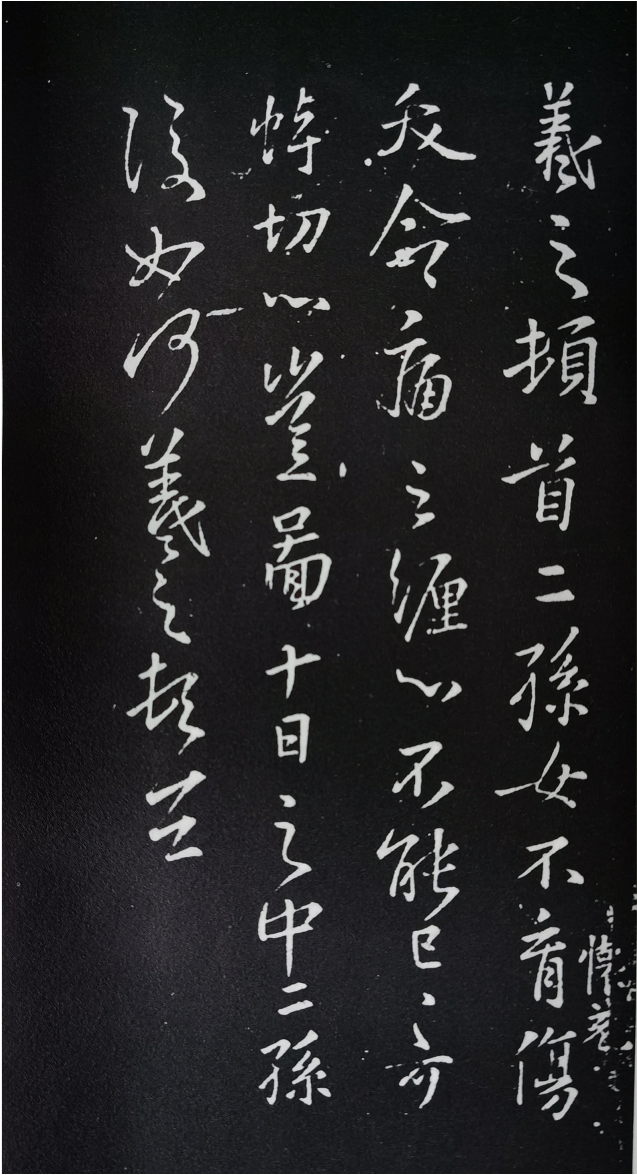 羲之頓首二孫女不育傷
夭命痛之纏心不能已已可
悼切心豈圖十日之中二孫
復如何羲之頓首